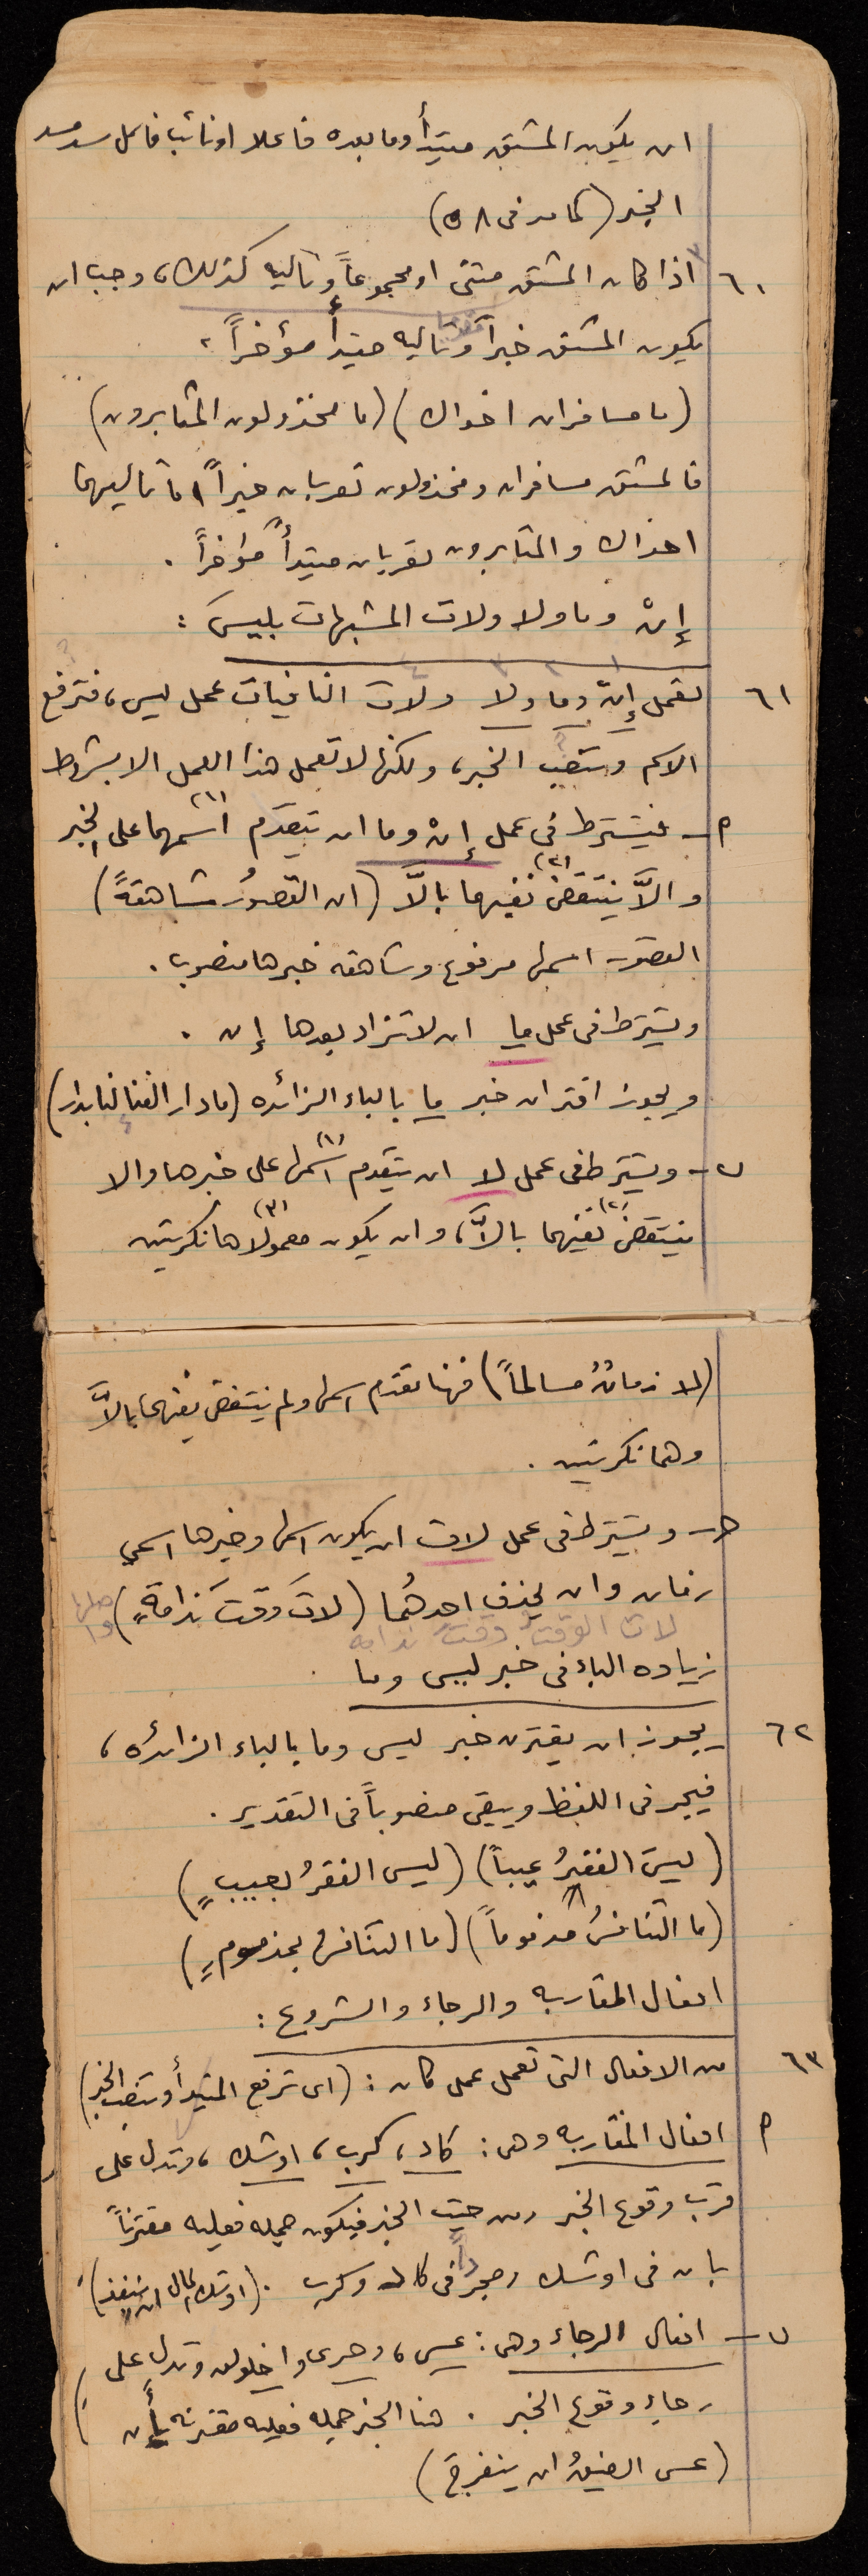 ان يكون المشتق مبتدأ وما بعده فاعلا او نائب فاعل سد مسد
الخبر (كما مر في ٥٨)
٦٠ اذا كان المشتق مثنى او مجموعاً وتاليه كذلك، وجب ان
يكون المشتق خبراً مقدماً وتاليه مبتدأ مؤخراً،
(ما مسافران اخواك) (ما مخذولون المثابرون)
فالمشتق مسافران ومخذولون تعربان خبراً اما تاليهما
اخواك والمثابرون تعربان مبتدأً مؤخراً.
إنْ وما ولا ولات المشبهات بليسَ:
٦١ تعمل إنْ وما ولا ولات النافيات عمل ليس، فترفع
الاسم وتنصب الخبر، ولكنها لا تعمل هذا العمل الا بشروط
٢ـ فيشترط في عمل إنْ وما ان يتقدم اسمهما (١) على الخبر
والاَّ ينتقض (٢) نفيهما بالاَّ (ان القصورُ شاهقةً)
القصور اسمها مرفوع وشاهقه خبرها منصوب.
ويشترط في عمل ما ان لا تزاد بعدها إن.
ويجوز اقتران خبر ما بالباء الزائده (ما دار الفنا لنا بدار)
ب ـ ويشترط في عمل لا ان يتقدم اسمها (١) على خبرها والا
ينتقض (٢) نفيهما بالاَّ، وان يكون معمولاها (٣) نكرتين
(لا زمانٌ سالماً) فهنا تقدم اسمها ولم ينتقض نفيهما بالاَّ
وهما نكرتين.
حـ ـ ويشترط في عمل لات ان يكون اسمها وخبرها اسمي
زمان وان يحذف احدهُما (لاتَ وقتَ ندامةٍ) اصلها
لات الوقتُ وقتَ ندامه
زياده الباء في خبر ليس وما
٦٢ يجوز ان يقترن خبر ليس وما بالباء الزائده،
فيجر في اللفظ ويبقى منصوباً في التقدير.
(ليسَ الفقرُ عيباً) (ليس الفقرُ بعيبٍ)
(ما التنافسُ مذموماً) (ما التنافسُ بمذمومٍ)
افعال المقاربه والرجاء والشروع:
٦٣ من الافعال التي تعمل عمل كان: (اي ترفع المبتدأ وتنصب الخبر)
٢ افعال المقاربه وهي: كاد، كرب، اوشك، وتدل على
قرب وقوع الخبر ومن حيث الخبر فيكون جمله فعليه مقترناً
بان في اوشك ومجرداً في كاد وكرب. (اوشك المال ان ينفذ)
ب ـ افعال الرجاء وهي: عسى، وحرى واخلولق وتدل على
رجاء وقوع الخبر. هنا الخبر جمله فعليه مقترنه بأن
(عسى الضيقُ ان ينفرج)